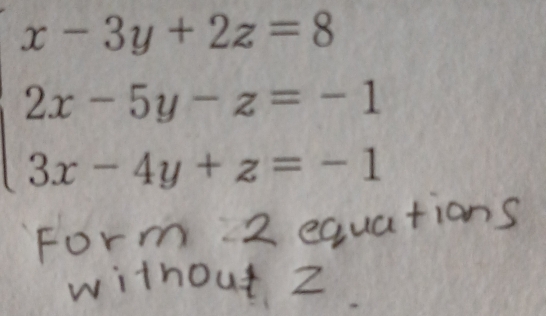 x − 3y + 2z = 8
2x − 5y − z = − 1
3x − 4y + z = − 1
Form 2 equations
without z.